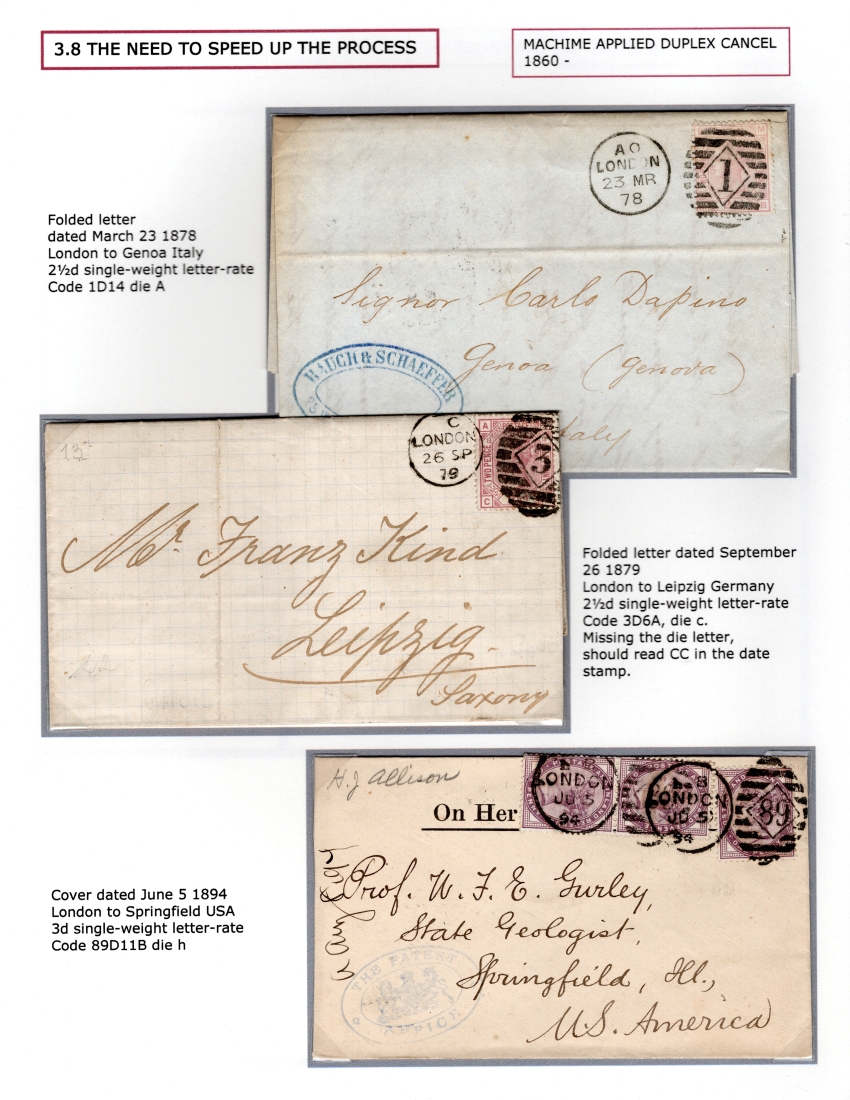 3.8 THE NEED TO SPEED UP THE PROCESS
MACHIME APPLIED DUPLEX CANCEL
1860 -
Folded letter
dated March 23 1878
London to Genoa Italy
2½d single-weight letter-rate
Code 1D14 die A
AO
LONDON
23 MR
78
1
M
B
Signor Carlo Dapino
Genoa (Genova)
Italy
RAUCH & SCHAEFFER
13
C
LONDON
26 SP
79
3
A
TWO PENCE
C
Mr. Franz Kind
Leipzig.
Saxony
Folded letter dated September
26 1879
London to Leipzig Germany
2½d single-weight letter-rate
Code 3D6A, die c.
Missing the die letter,
should read CC in the date
stamp.
Cover dated June 5 1894
London to Springfield USA
3d single-weight letter-rate
Code 89D11B die h
H. J. Allison
On Her
LONDON
JU 5
94
B
LONDON
JU 5
94
89
Prof. W. F. E. Gurley,
State Geologist,
Springfield, Ill.,
U.S. America
THE PATENT
OFFICE